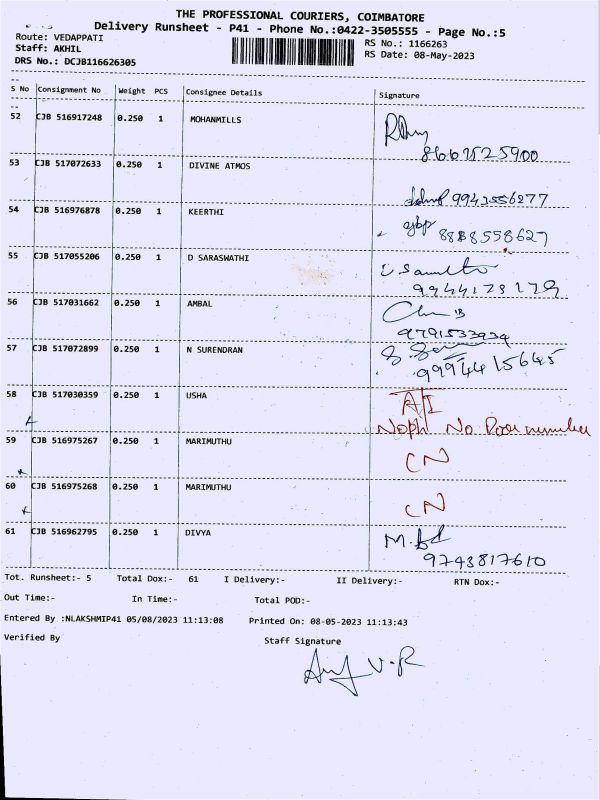 THE PROFESSIONAL COURIERS, COIMBATORE
Delivery Runsheet - P41 - Phone No.:0422-3505555 - Page No.:5
Route: VEDAPPATI
RS No.: 1166263
Staff: AKHIL
RS Date: 08-May-2023
DRS No.: DCJB116626305
S No Consignment No Weight PCS Consignee Details Signature
52 CJB 516917248 0.250 1 MOHANMILLS
8667525900
53 CJB 517072633 0.250 1 DIVINE ATMOS
9942556277
54 CJB 516976878 0.250 1 KEERTHI
8888558627
55 CJB 517055206 0.250 1 D SARASWATHI
9944173179
56 CJB 517031662 0.250 1 AMBAL
9791533934
57 CJB 517072899 0.250 1 N SURENDRAN
9994415645
58 CJB 517030359 0.250 1 USHA A/I
Noph No Door number
59 CJB 516975267 0.250 1 MARIMUTHU CN
60 CJB 516975268 0.250 1 MARIMUTHU CN
61 CJB 516962795 0.250 1 DIVYA
9743817610
Tot. Runsheet:- 5 Total Dox:- 61 I Delivery:- II Delivery:- RTN Dox:-
Out Time:- In Time:- Total POD:-
Entered By :NLAKSHMIP41 05/08/2023 11:13:08 Printed On: 08-05-2023 11:13:43
Verified By Staff Signature